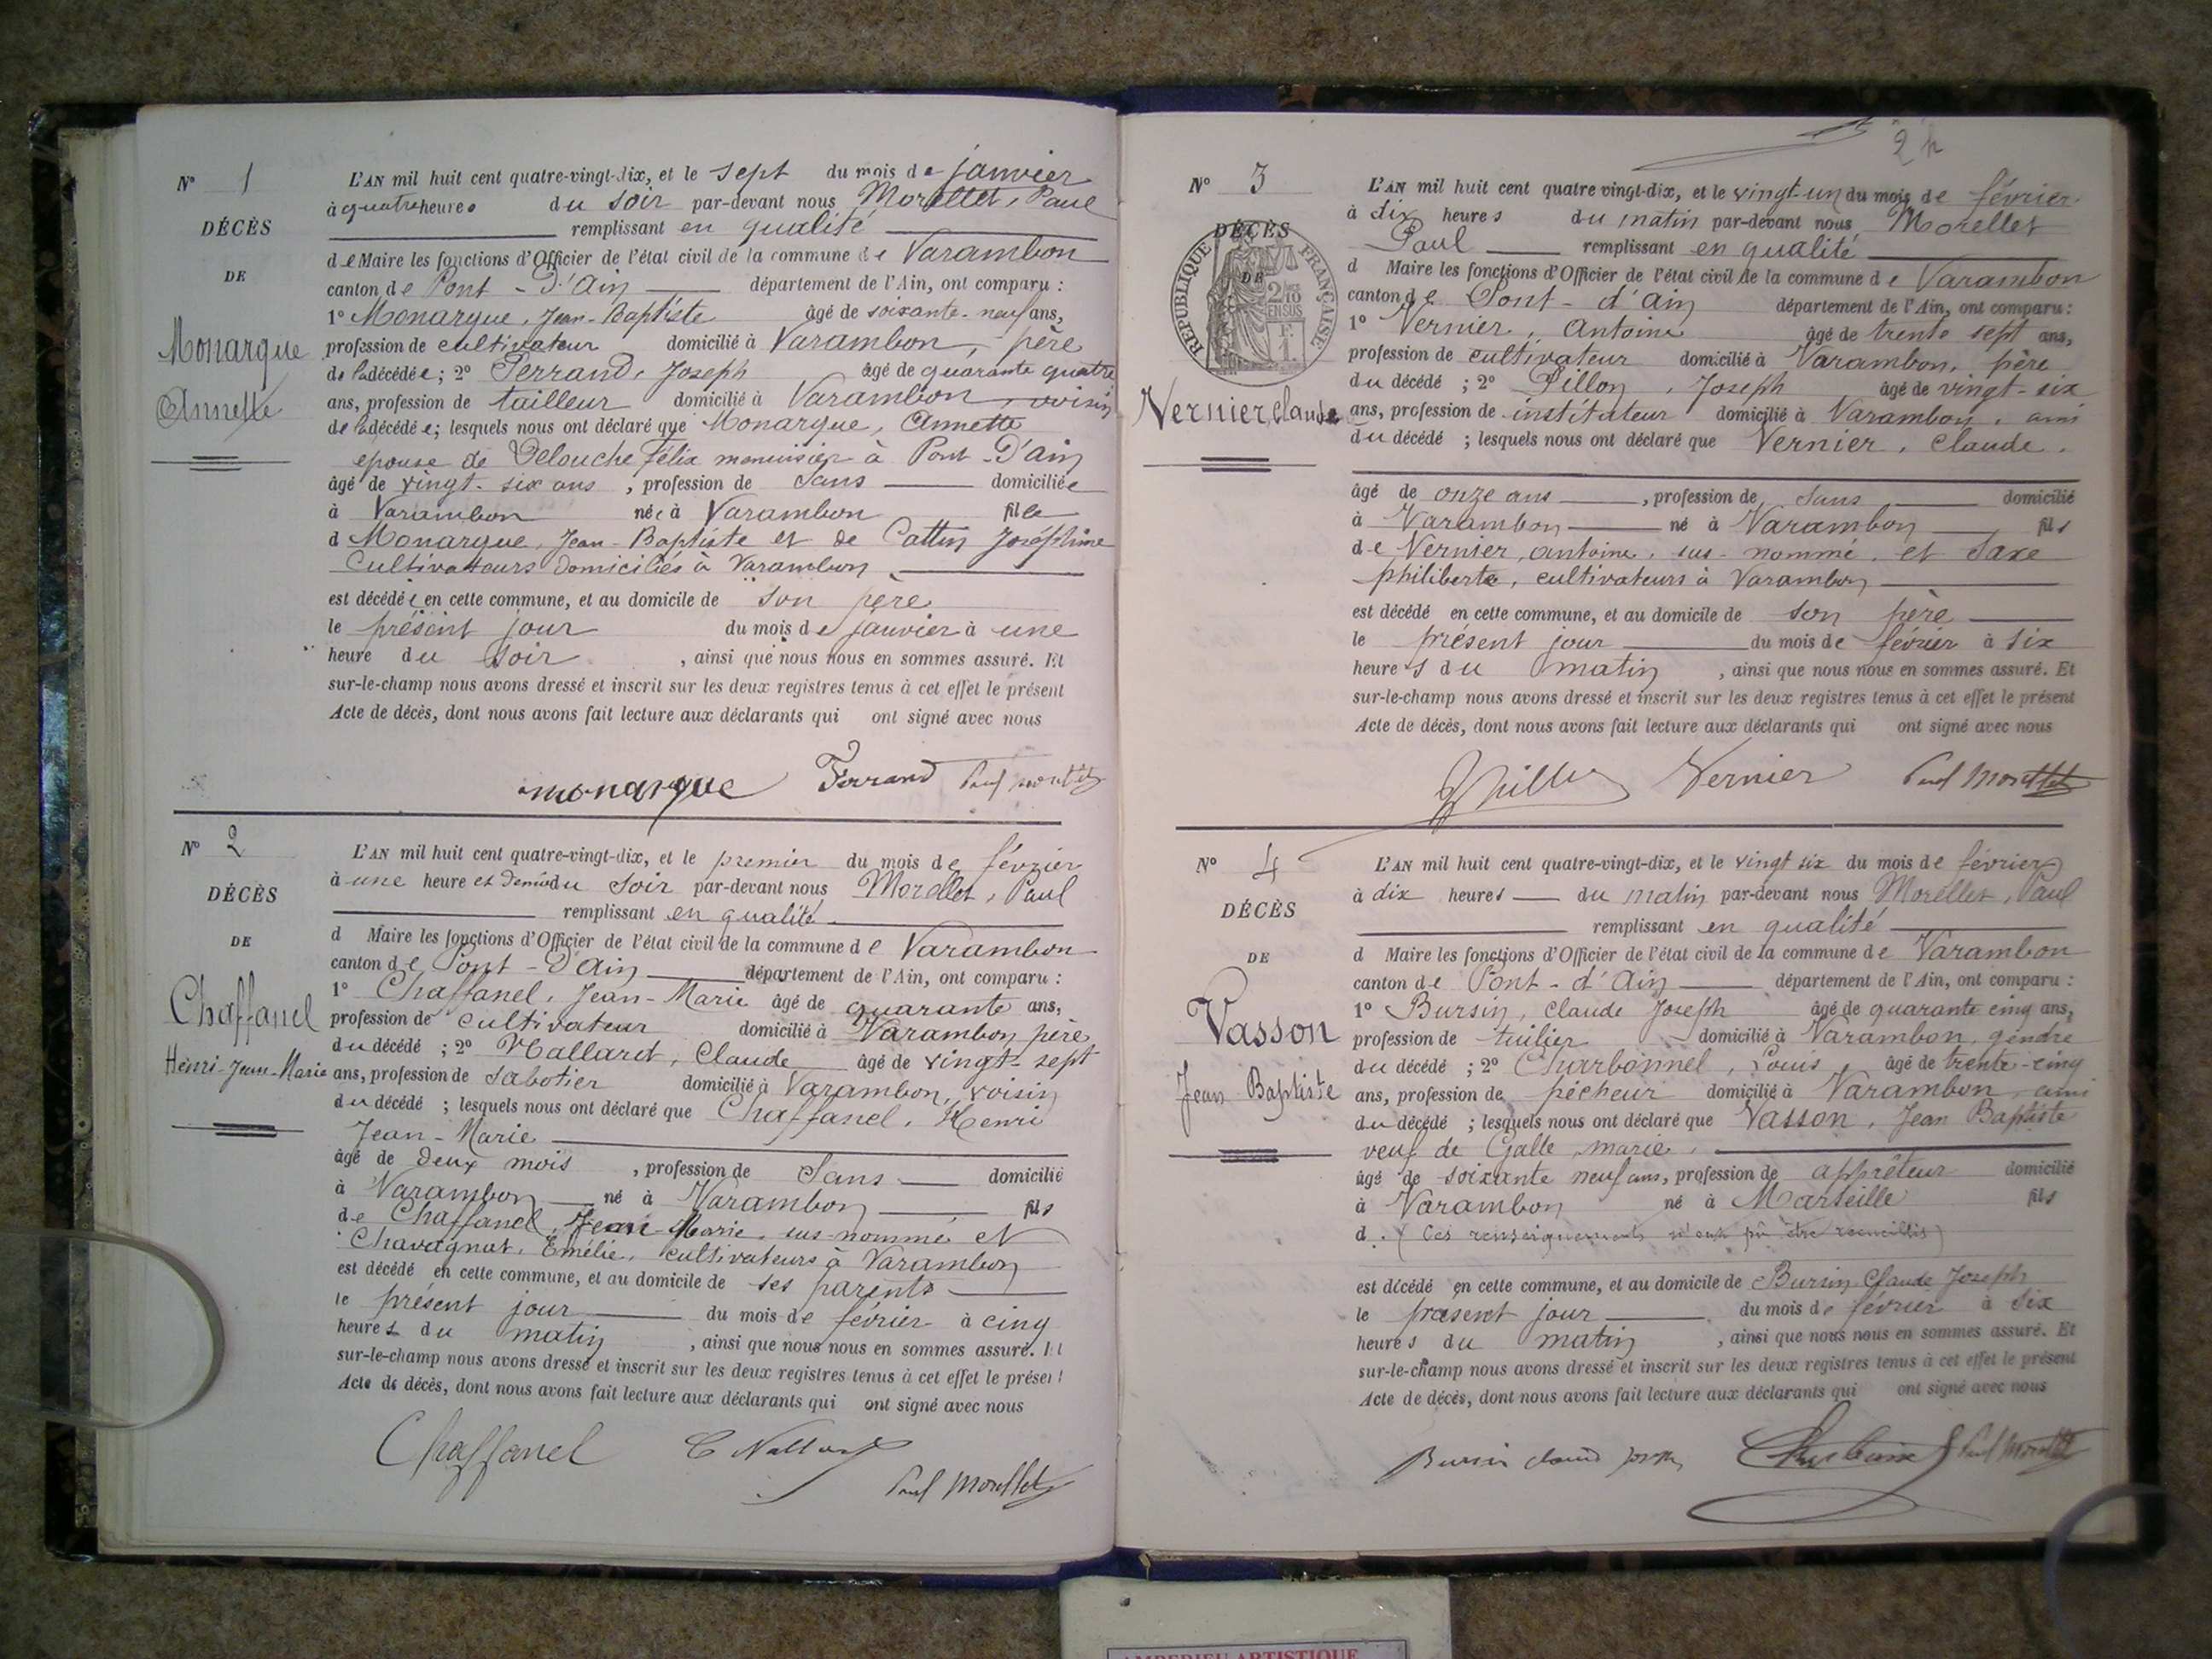 N° 1
DÉCÈS
DE
Monarque
Annette
L'AN mil huit cent quatre-vingt-dix, et le sept du mois de janvier
à quatre heures du soir par-devant nous Morellet, Paul
remplissant en qualité
de Maire les fonctions d'Officier de l'état civil de la commune de Varambon
canton de Pont-d'Ain département de l'Ain, ont comparu :
1° Monarque, Jean-Baptiste âgé de soixante-neuf ans,
profession de cultivateur domicilié à Varambon, père
de la décédée ; 2° Ferrand, Joseph âgé de quarante quatre
ans, profession de tailleur domicilié à Varambon, voisin
de la décédée ; lesquels nous ont déclaré que Monarque, Annette
épouse de Delouche Félix menuisier à Pont-D'ain
âgé de vingt-six ans, profession de Sans domiciliée
à Varambon née à Varambon fille
d Monarque, Jean-Baptiste et de Cattin Joséphine
Cultivateurs domiciliés à Varambon
est décédée en cette commune, et au domicile de son père
le présent jour du mois de janvier à une
heure du soir, ainsi que nous nous en sommes assuré. Et
sur-le-champ nous avons dressé et inscrit sur les deux registres tenus à cet effet le présent
Acte de décès, dont nous avons fait lecture aux déclarants qui ont signé avec nous
monarque Ferrand Paul Morellet
N° 2
DÉCÈS
DE
Chaffanel
Henri-Jean-Marie
L'AN mil huit cent quatre-vingt-dix, et le premier du mois de février
à une heure et demie du soir par-devant nous Morellet, Paul
remplissant en qualité
d Maire les fonctions d'Officier de l'état civil de la commune de Varambon
canton de Pont-D'Ain département de l'Ain, ont comparu :
1° Chaffanel, Jean-Marie âgé de quarante ans,
profession de cultivateur domicilié à Varambon père
du décédé ; 2° Nallard, Claude âgé de vingt-sept
ans, profession de sabotier domicilié à Varambon, voisin
du décédé ; lesquels nous ont déclaré que Chaffanel, Henri
Jean-Marie
âgé de deux mois, profession de Sans domicilié
à Varambon né à Varambon fils
de Chaffanel, Jean-Marie, sus-nommé et
Chavagnat, Emélie, cultivateurs à Varambon
est décédé en cette commune, et au domicile de ses parents
le présent jour du mois de février à cinq
heures du matin, ainsi que nous nous en sommes assuré. Et
sur-le-champ nous avons dressé et inscrit sur les deux registres tenus à cet effet le présent
Acte de décès, dont nous avons fait lecture aux déclarants qui ont signé avec nous
Chaffanel C Nallard
Paul Morellet
N° 3
DÉCÈS
DE
RÉPUBLIQUE FRANÇAISE
2/10
EN SUS
F.
1.
Vernier Claude
L'AN mil huit cent quatre vingt-dix, et le vingt-un du mois de février
à dix heures du matin par-devant nous Morellet
Paul remplissant en qualité
d Maire les fonctions d'Officier de l'état civil de la commune de Varambon
canton de Pont-d'Ain département de l'Ain, ont comparu :
1° Vernier, Antoine âgé de trente sept ans,
profession de cultivateur domicilié à Varambon, père
du décédé ; 2° Pillon, Joseph âgé de vingt-six
ans, profession de instituteur domicilié à Varambon, ami
du décédé ; lesquels nous ont déclaré que Vernier, Claude,
âgé de onze ans, profession de sans domicilié
à Varambon né à Varambon fils
de Vernier, antoine, sus-nommé, et Saxe
philiberte, cultivateurs à Varambon
est décédé en cette commune, et au domicile de son père
le présent jour du mois de février à six
heures du matin, ainsi que nous nous en sommes assuré. Et
sur-le-champ nous avons dressé et inscrit sur les deux registres tenus à cet effet le présent
Acte de décès, dont nous avons fait lecture aux déclarants qui ont signé avec nous
Vernier Paul Morellet
N° 4
DÉCÈS
DE
Vasson
Jean Baptiste
L'AN mil huit cent quatre-vingt-dix, et le vingt six du mois de février
à dix heures du matin par-devant nous Morellet, Paul
remplissant en qualité
d Maire les fonctions d'Officier de l'état civil de la commune de Varambon
canton de Pont-d'Ain département de l'Ain, ont comparu :
1° Bursin, Claude Joseph âgé de quarante cinq ans,
profession de tuilier domicilié à Varambon, gendre
du décédé ; 2° Charbonnel, Louis, âgé de trente-cinq
ans, profession de pêcheur domicilié à Varambon, ami
du décédé ; lesquels nous ont déclaré que Vasson, Jean Baptiste
veuf de Galle marie,
âgé de soixante neuf ans, profession de apprêteur domicilié
à Varambon né à Marseille fils
d. (Ces renseignements n'ont pu être recueillis)
est décédé en cette commune, et au domicile de Bursin Claude Joseph
le présent jour du mois de février à six
heures du matin, ainsi que nous nous en sommes assuré. Et
sur-le-champ nous avons dressé et inscrit sur les deux registres tenus à cet effet le présent
Acte de décès, dont nous avons fait lecture aux déclarants qui ont signé avec nous
Bursin Paul Morellet